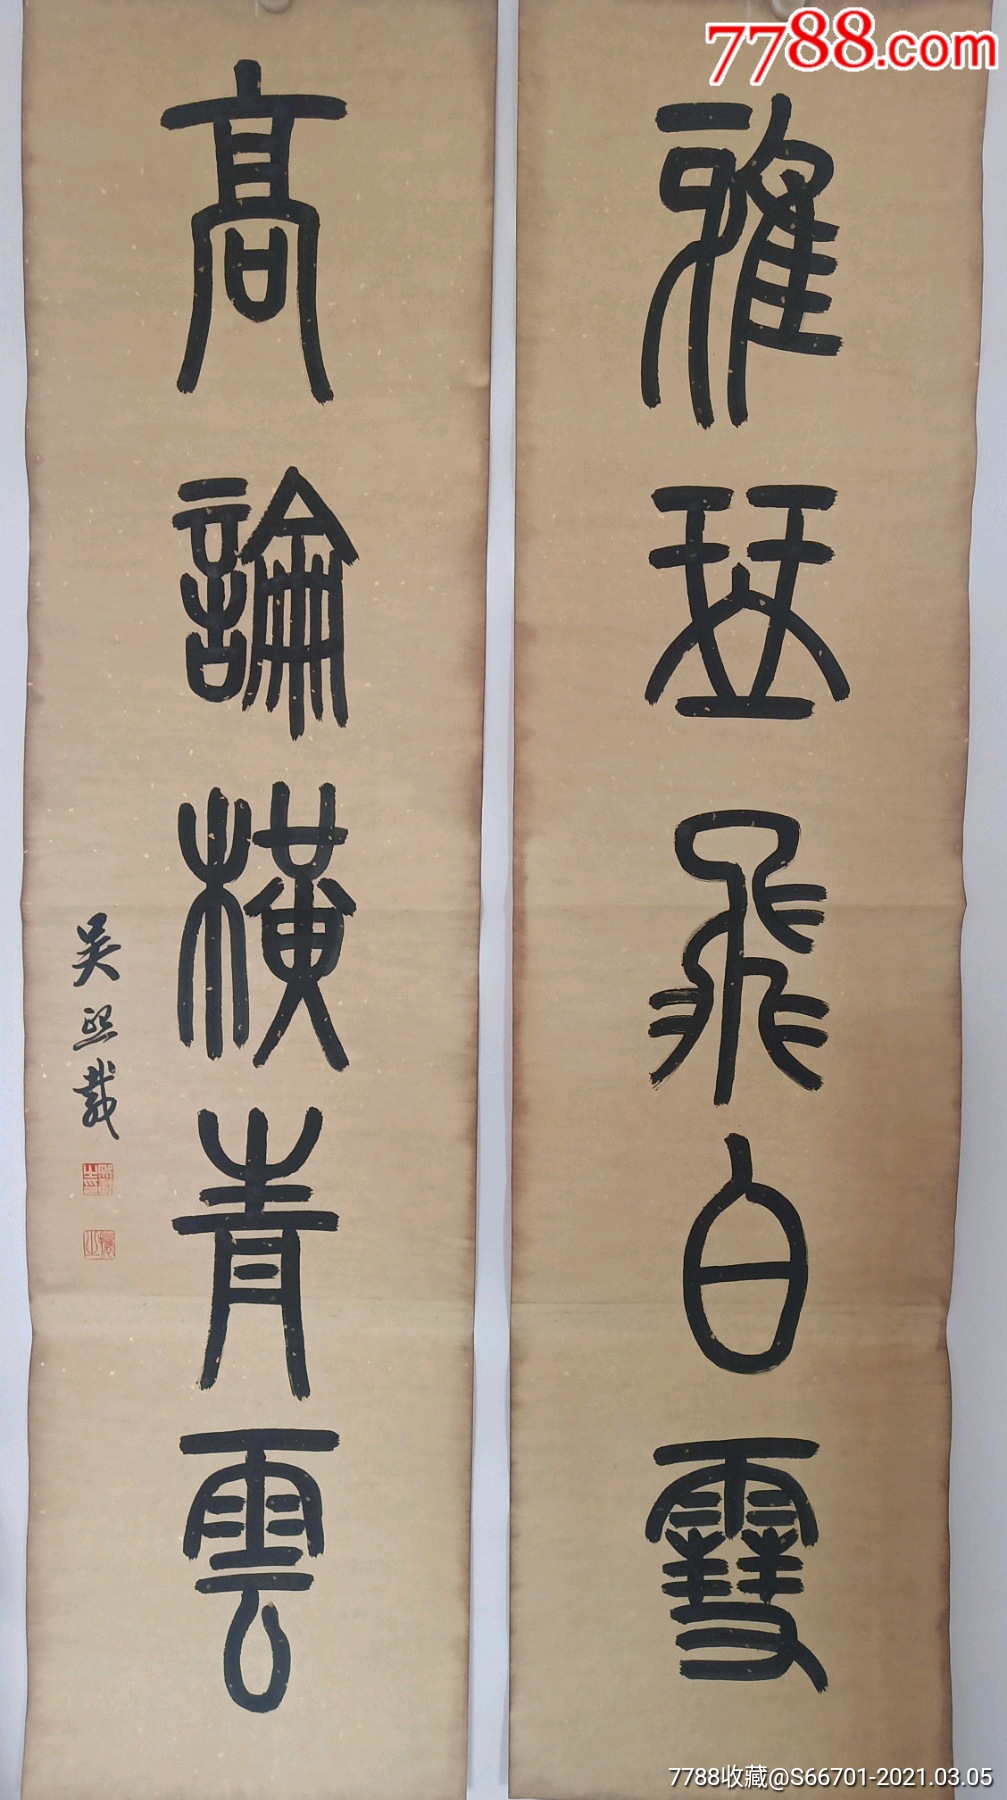 7788.com
雅琴飛白雪
高論橫青雲
吳熙載
7788收藏@S66701-2021.03.05